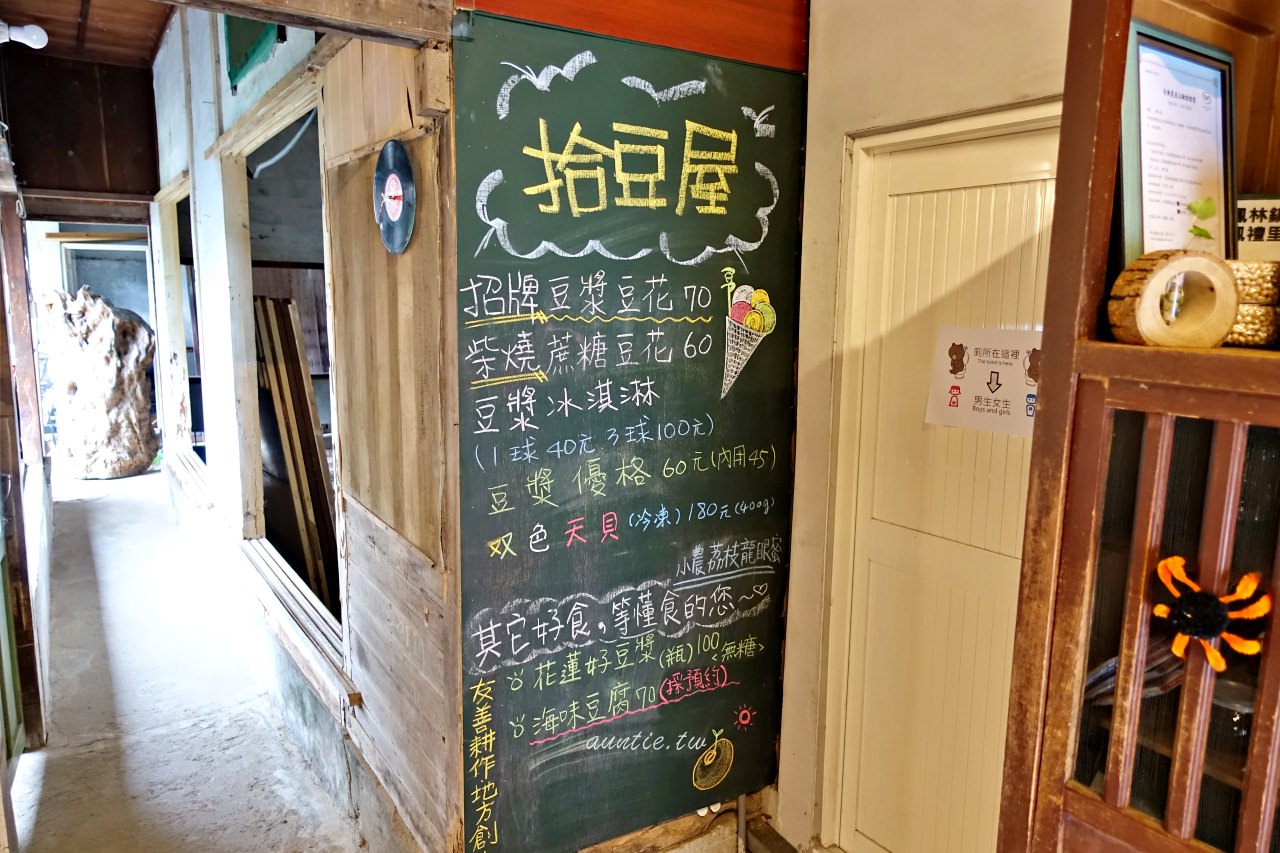 拾豆屋
招牌豆漿豆花 70
柴燒蔗糖豆花 60
豆漿冰淇淋
(1球40元 3球100元)
豆漿優格 60元(內用45)
双色天貝(冷凍)180元(400g)
小農荔枝龍眼蜜
其它好食，等懂食的您~♡
花蓮好豆漿(瓶)100<無糖>
海味豆腐70(採預約)
友善耕作地方創
auntie.tw
廁所在這裡
The toilet is here
男生女生
Boys and girls
鳳林鎮
鳳禮里